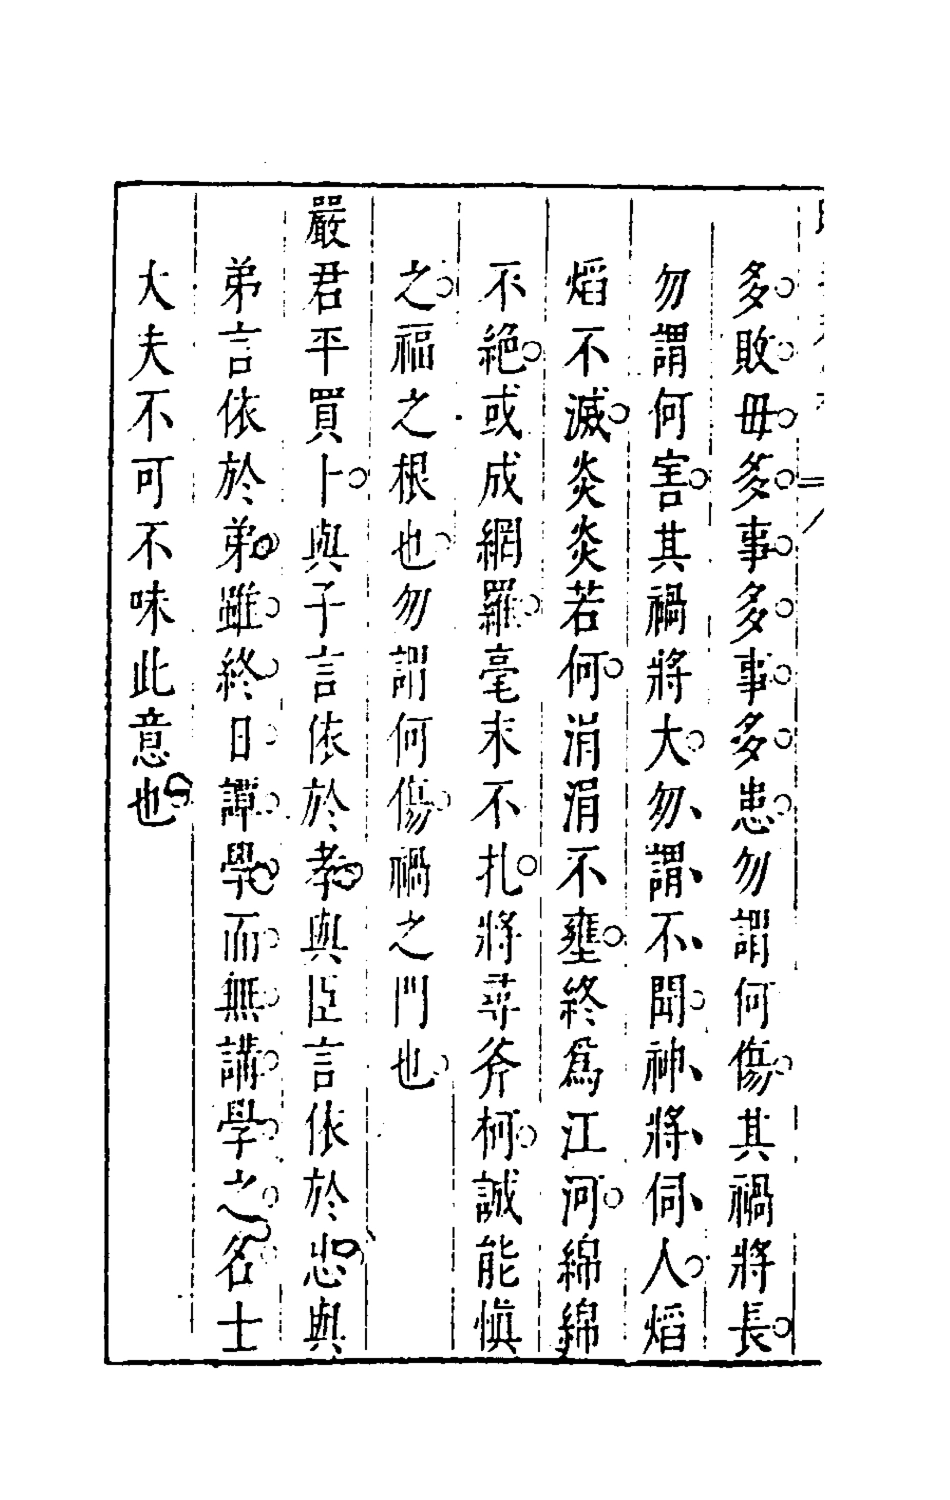 多敗毋多事多事多患勿謂何傷其禍將長
勿謂何害其禍將大勿謂不聞神將伺人熖
熖不滅炎炎若何涓涓不壅終爲江河綿綿
不絶或成網羅毫末不扎將尋斧柯誠能慎
之福之根也勿謂何傷禍之門也
嚴君平買卜與子言依於孝與臣言依於忠與
弟言依於弟雖終日譚學而無講學之名士
大夫不可不味此意也